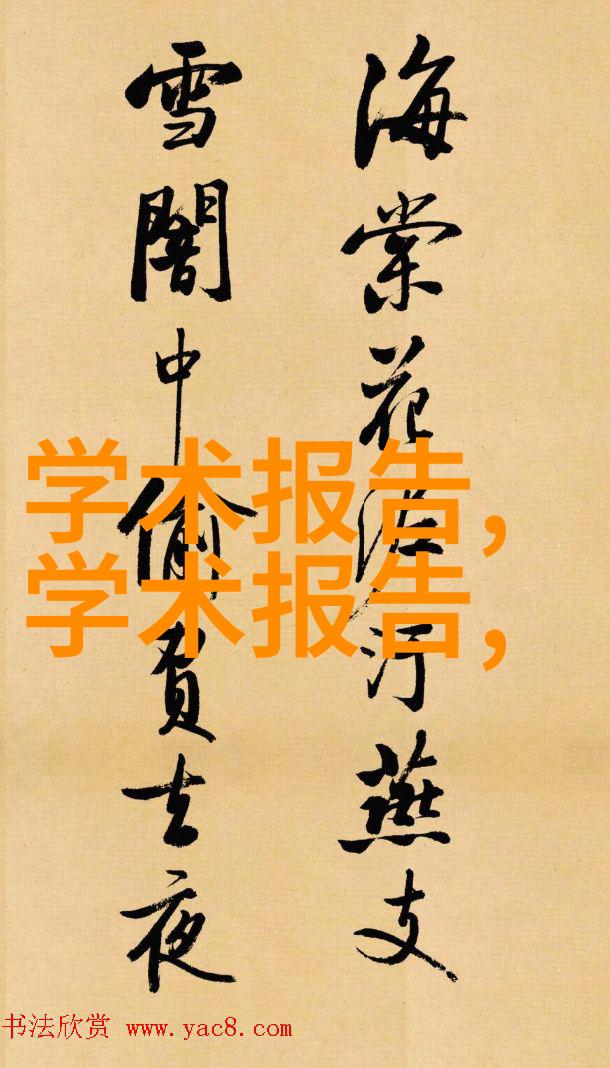 海棠花泥汙燕支
雪闇中偷負去夜
学术报告,
学术报告,
书法欣赏 www.yac8.com